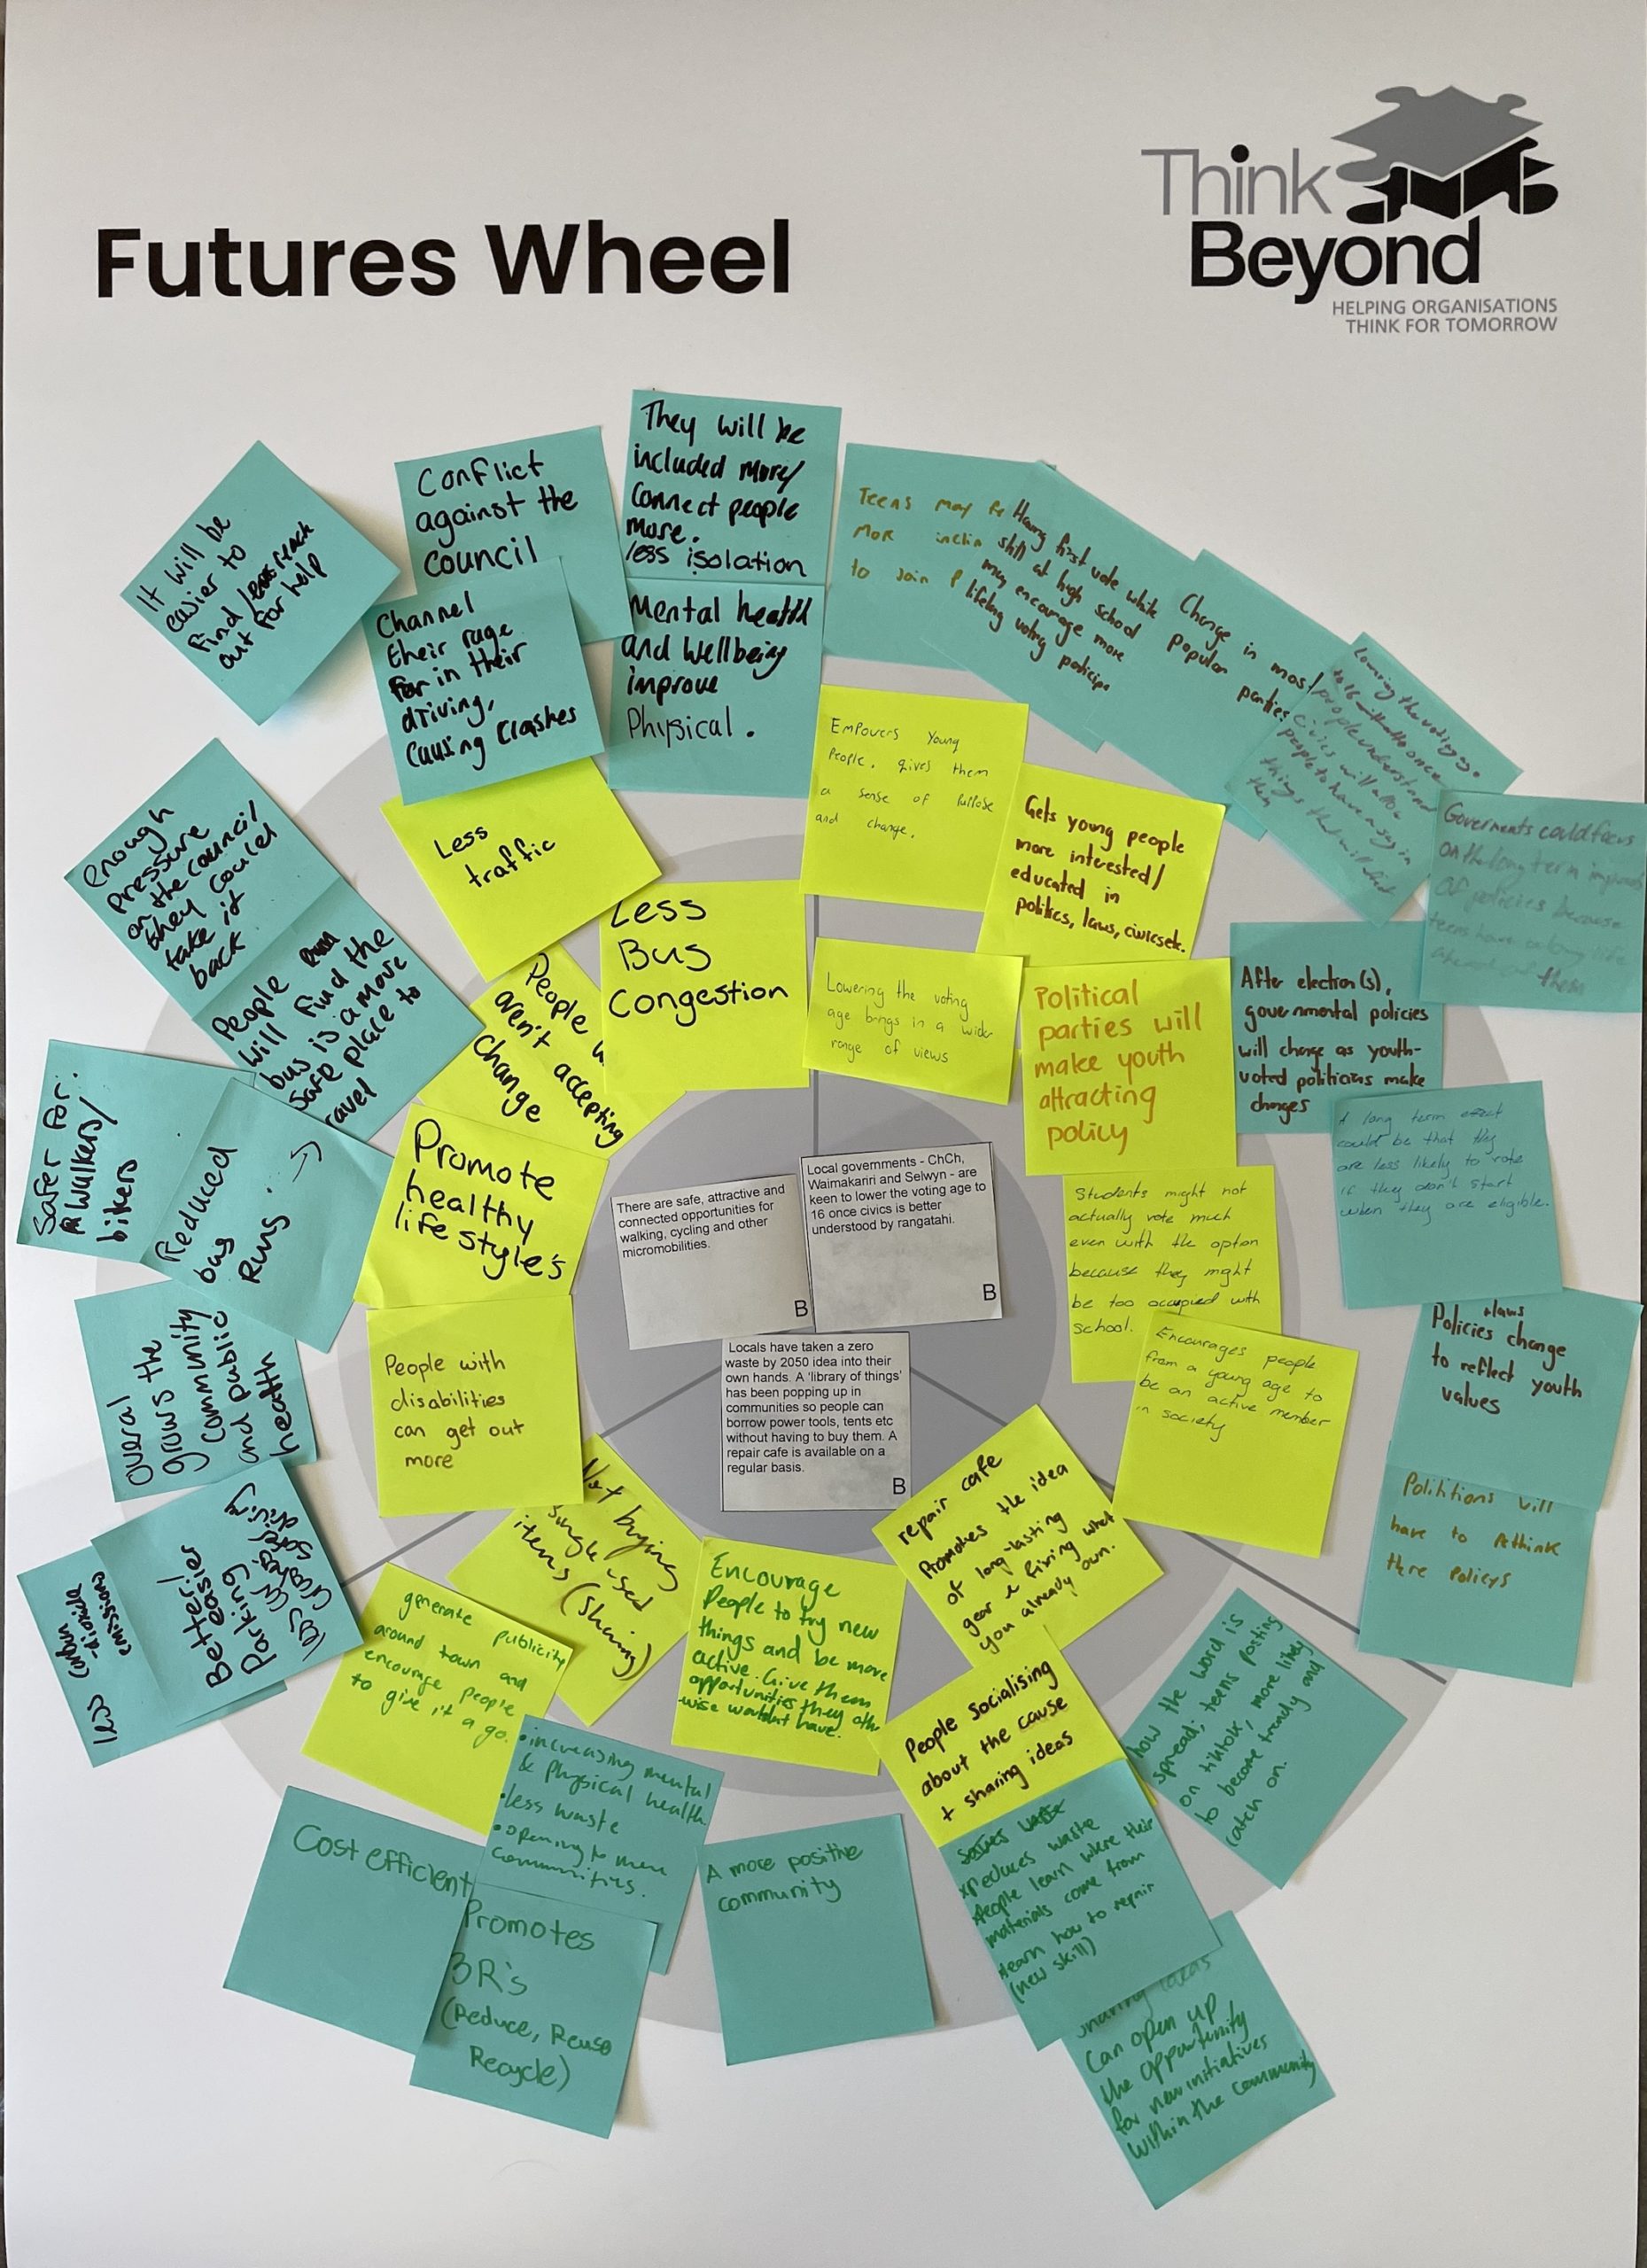 Think
Beyond
HELPING ORGANISATIONS
THINK FOR TOMORROW
Futures Wheel
It will be
easier to
find
out for help
Conflict
against the
council
Channel
their rage
in their
driving,
causing crashes
They will be
included more/
Connect people
more.
less isolation
Mental health
and wellbeing
improve
Physical.
Teens may
more
to join
Having first vote while
still at high school
may encourage more
lifelong voting
Change in most
popular
parties
Lowering the voting age
to 16
people understand
civics will allow
people to have a say in
things that will
Goverments could focus
on the long term
of policies because
teens have a long life
ahead of them
enough
pressure
on the council
they could
take it
back
People
will find the
bus is a more
safe place to
travel
Less
traffic
People
aren't accepting
change
Less
Bus
Congestion
Empowers Young
People. gives them
a sense of
and change.
Gets young people
more interested/
educated in
politics, laws,
Lowering the voting
age brings in a wider
range of views
Political
parties will
make youth
attracting
policy
After election(s),
governmental policies
will change as youth-
voted politicians make
changes
A long term effect
could be that they
are less likely to vote
if they don't start
when they are eligible.
Safer for
walkers/
bikers
Reduced
bus
Runs
Promote
healthy
life style's
There are safe, attractive and
connected opportunities for
walking, cycling and other
micromobilities.
B
Local governments - ChCh,
Waimakariri and Selwyn - are
keen to lower the voting age to
16 once civics is better
understood by rangatahi.
B
Locals have taken a zero
waste by 2050 idea into their
own hands. A 'library of things'
has been popping up in
communities so people can
borrow power tools, tents etc
without having to buy them. A
repair cafe is available on a
regular basis.
B
Students might not
actually vote much
even with the option
because they might
be too occupied with
school.
Encourages people
from a young age to
be an active member
in society
Policies + laws change
to reflect youth
values
Polititions will
have to
Policys
Overal the
grows the
community
and public
health
People with
disabilities
can get out
more
less
emissions
Better/
easier
Parking
less
safer
driving
Not buying
single used
items (sharing)
generate publicity
around town and
encourage people
to give it a go.
Encourage
People to try new
things and be more
active. Give them
opportunities they oth
wise wouldn't have.
repair cafe
Promotes the idea
of long-lasting
gear & fixing what
you already own.
People Socialising
about the cause
+ sharing ideas
how the word is
spread; teens posting
on tiktok, more likely
to become trendy and
catch on.
Cost efficient
• increasing mental
& physical health
• less waste
• opening to
communities.
Promotes
3R's
(Reduce, Reuse
Recycle)
A more positive
community
reduces waste
People learn where their
materials come from
learn how to repair
(new skill)
sharing ideas
Can open up
the opportunity
for new initiatives
within the community